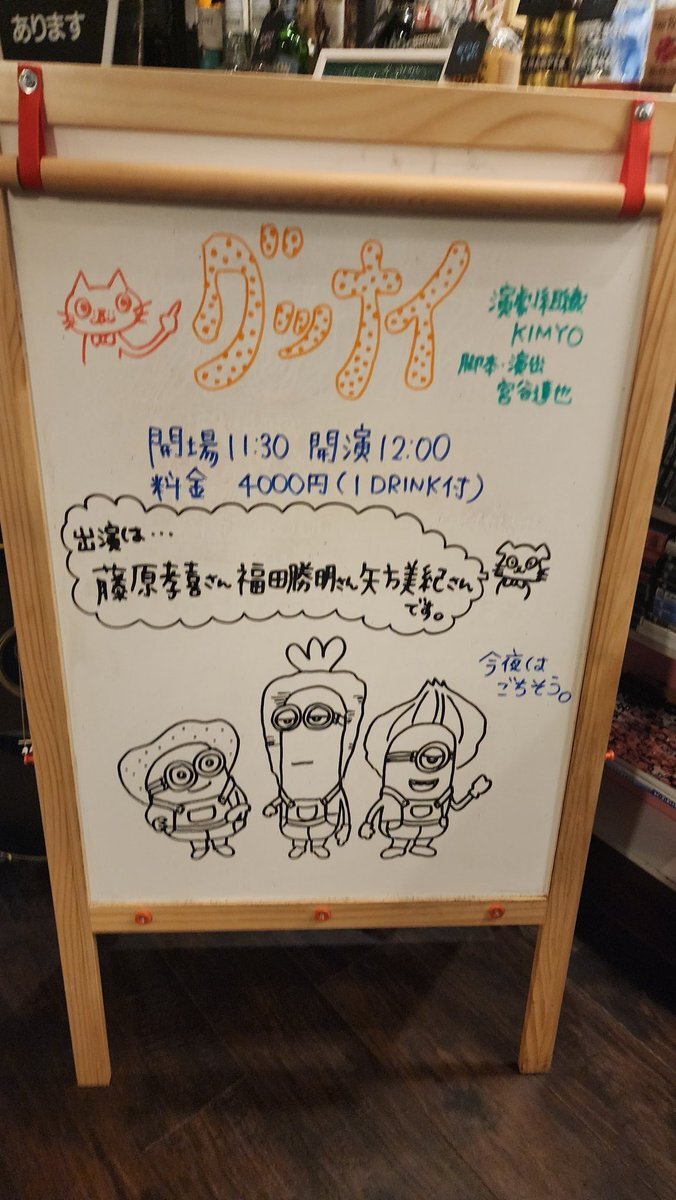 あります
グッナイ
演劇組織
KIMYO
脚本・演出
宮谷達也
開場11:30 開演12:00
料金 4000円(1DRINK付)
出演は…
藤原孝喜さん福田勝明さん矢方美紀さん
です。
今夜は
ごちそう。